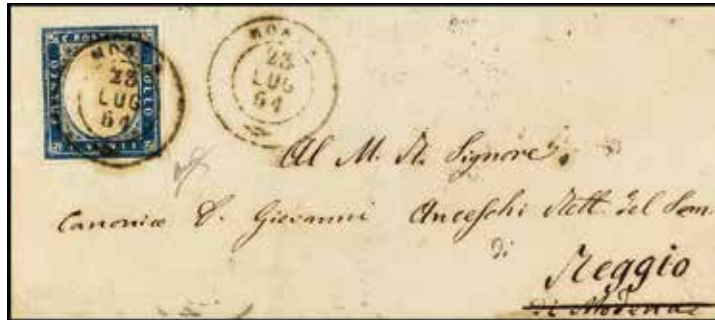 C. POSTE
FRANCO
BOLLO
C. VENTI
23
LUG
61
23
LUG
61
Al M. R. Signore
Canonico D. Giovanni Anceschi Rett. del Sem.
di
Reggio
di Modena